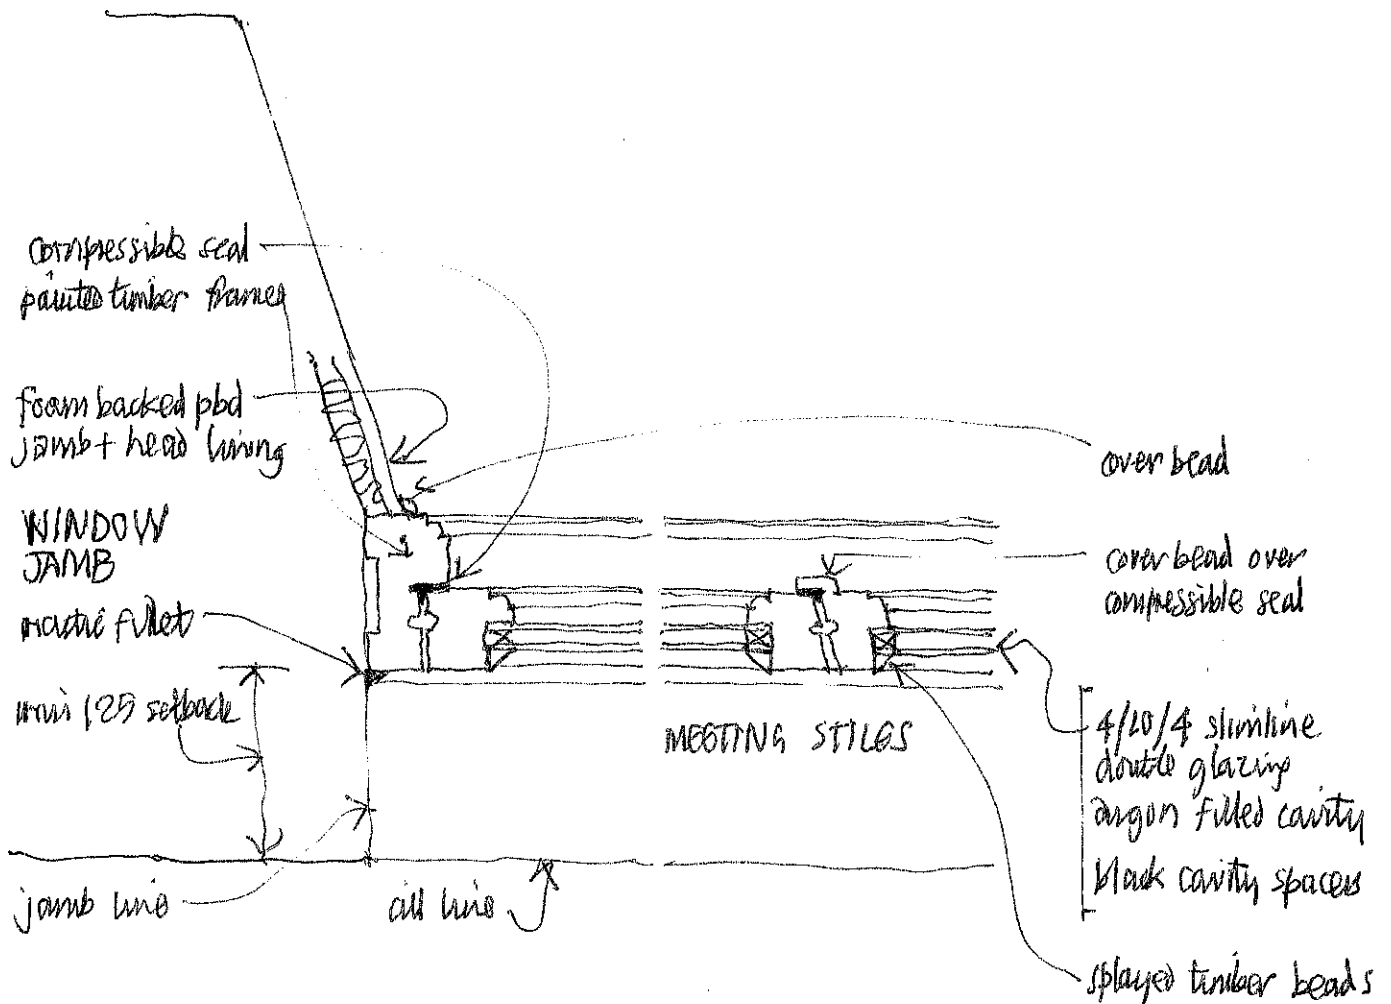 compressible seal
painted timber frames
foam backed pbd
jamb + head lining
WINDOW
JAMB
mastic fillet
min 125 setback
jamb line
cill line
MEETING STILES
cover bead
cover bead over
compressible seal
4/10/4 slimline
double glazing
argon filled cavity
black cavity spacers
splayed timber beads